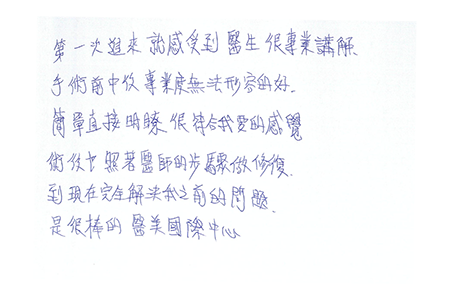 第一次進來就感受到醫生很專業講解.
手術前中後專業度無法形容的好.
簡單直接明瞭很符合我愛的感覺
術後也照著醫師的步驟做修復.
到現在完全解決我之前的問題.
是很棒的醫美國際中心